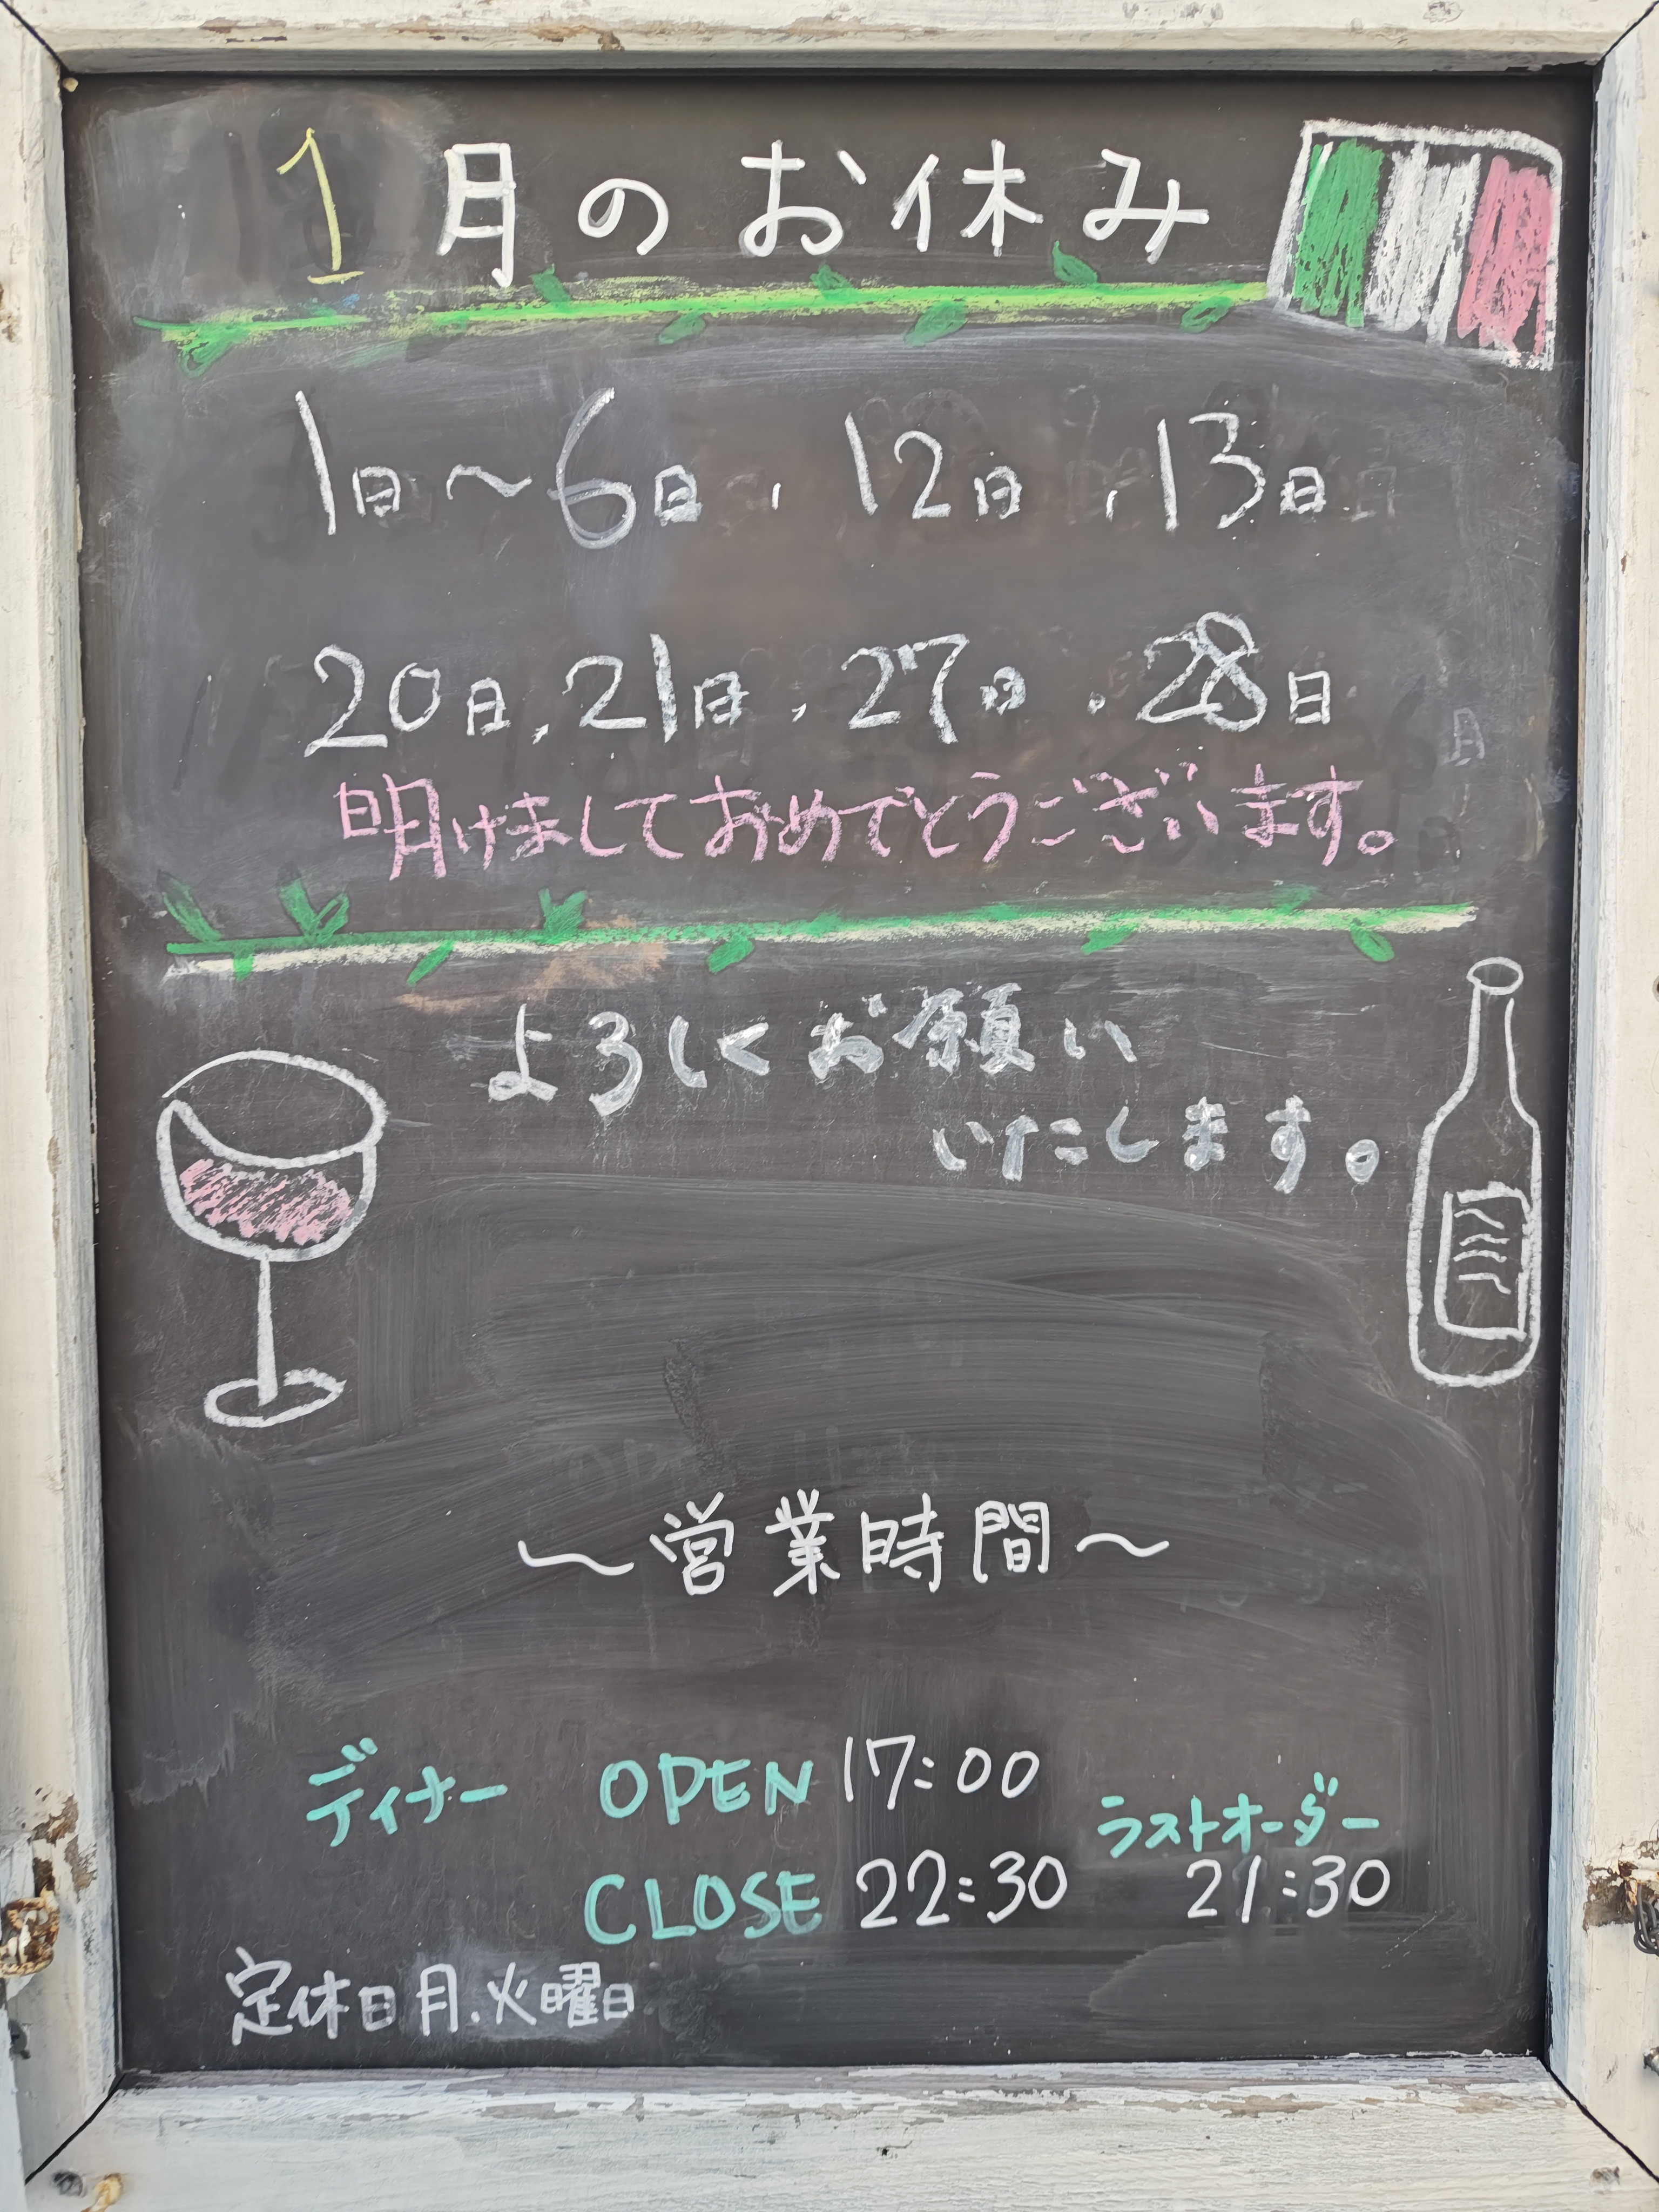 1月のお休み
1日～6日、12日、13日
20日、21日、27日、28日
明けましておめでとうございます。
よろしくお願い
いたします。
～営業時間～
ディナー OPEN 17:00
ラストオーダー
CLOSE 22:30 21:30
定休日 月.火曜日